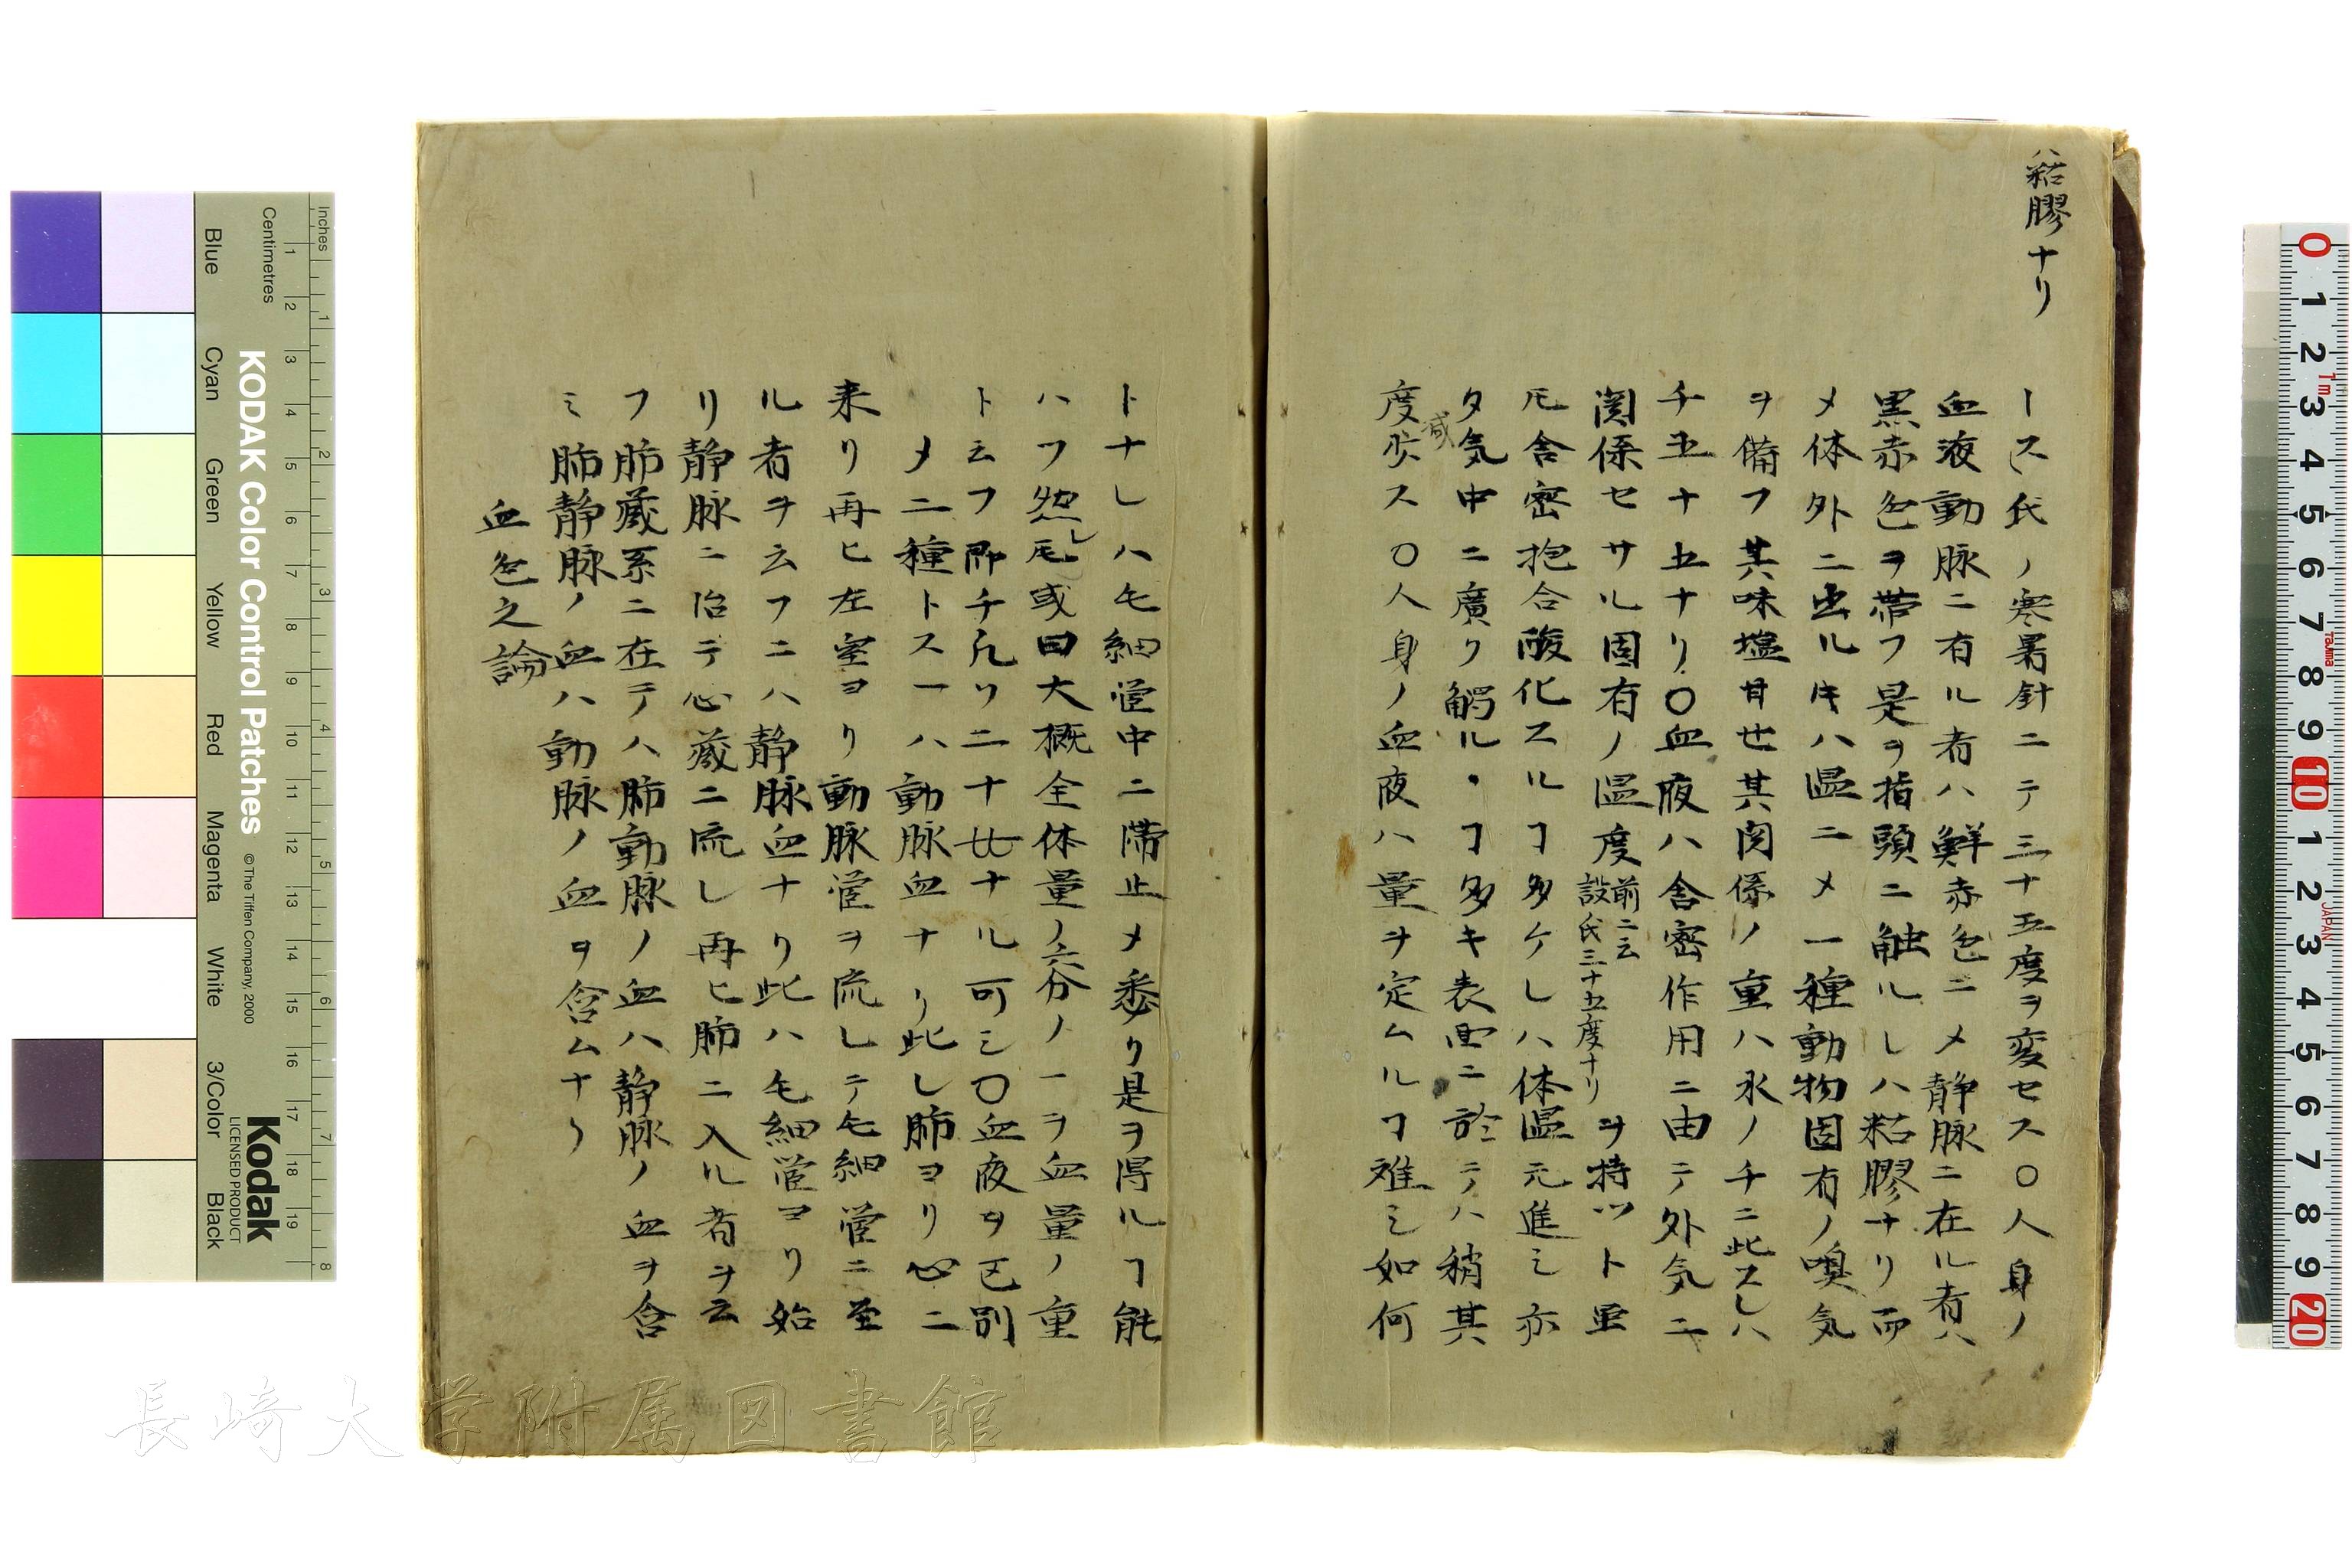 粘膠ナリ
ース氏ノ寒暑針ニテ三十五度ヲ変セス〇人身ノ
血液動脉ニ有ル者ハ鮮赤色ニメ静脉ニ在ル者ハ
黒赤色ヲ帯フ是ヲ指頭ニ触ルレハ粘膠ナリ而
メ体外ニ出ルキハ温ニメ一種動物固有ノ嗅気
ヲ備フ其味塩甘也其関係ノ重ハ水ノ千ニ此スレハ
千五十五ナリ〇血液ハ舎密作用ニ由テ外気ニ
関係セサル固有ノ温度前ニ云設氏三十五度ナリヲ持ツト虽
圧舎密抱合酸化スルヿ多ケレハ体温亢進シ亦
タ気中ニ廣ク觸ルヽヿ多キ表面ニ於テハ稍其
減
度ヲ ス〇人身ノ血液ハ量ヲ定ムルヿ難シ如何
トナレハ毛細管中ニ滞止メ悉ク是ヲ得ルヿ能
ハフ然レ圧或曰大概全体量ノ六分ノ一ヲ血量ノ重
ト云フ即チ凡ソ二十 ナル可シ〇血液ヲ区別
メ二種トス一ハ動脉血ナリ此レ肺ヨリ心ニ
来リ再ヒ左室ヨリ動脉管ヲ流レテ毛細管ニ至
ル者ヲ云フニハ静脉血ナリ此ハ毛細管ヨリ始
リ静脉ニ治テ心蔵ニ流レ再ヒ肺ニ入ル者ヲ云
フ肺蔵系ニ在テハ肺動脉ノ血ハ静脉ノ血ヲ含
ミ肺静脉ノ血ハ動脉ノ血ヲ含ムナリ
血色之論
Inches
Centimetres
KODAK Color Control Patches
© The Tiffen Company, 2000
Kodak
LICENSED PRODUCT
Blue
Cyan
Green
Yellow
Red
Magenta
White
3/Color
Black
長崎大学附属図書館